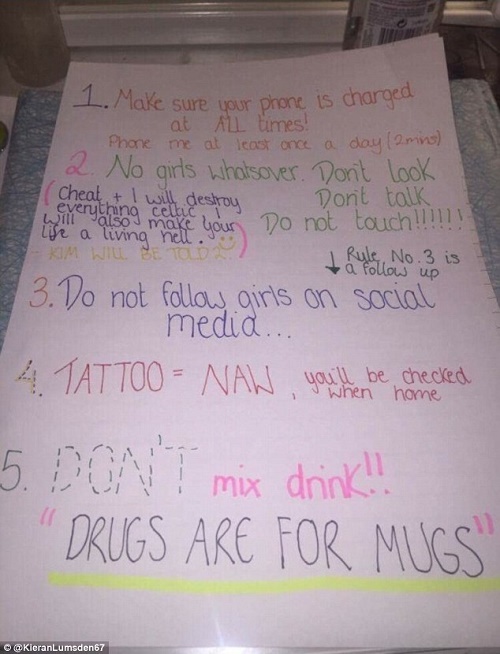 1. Make sure your phone is charged
at ALL times!
Phone me at least once a day (2mins)
2. No girls whatsover. Don't look
Don't talk
Do not touch!!!!!!
(Cheat + I will destroy
everything celtic I
will also make your
life a living hell. )
KIM WILL BE TOLD 2!
↓ Rule No. 3 is
a follow up
3. Do not follow girls on social
media...
4. TATTOO = NAW, you'll be checked
when home
5. DON'T mix drink!!
"DRUGS ARE FOR MUGS"
© @KieranLumsden67